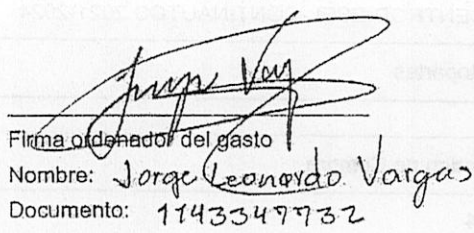 Firma ordenador del gasto
Nombre: Jorge Leonardo Vargas
Documento: 1143347732